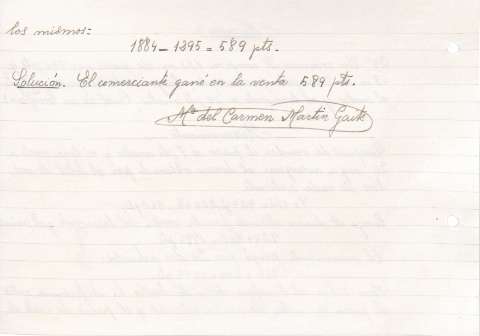 los mismos:
1884 — 1295 = 589 pts.
Solución. El comerciante ganó en la venta 589 pts.
Mª del Carmen Martín Gaite